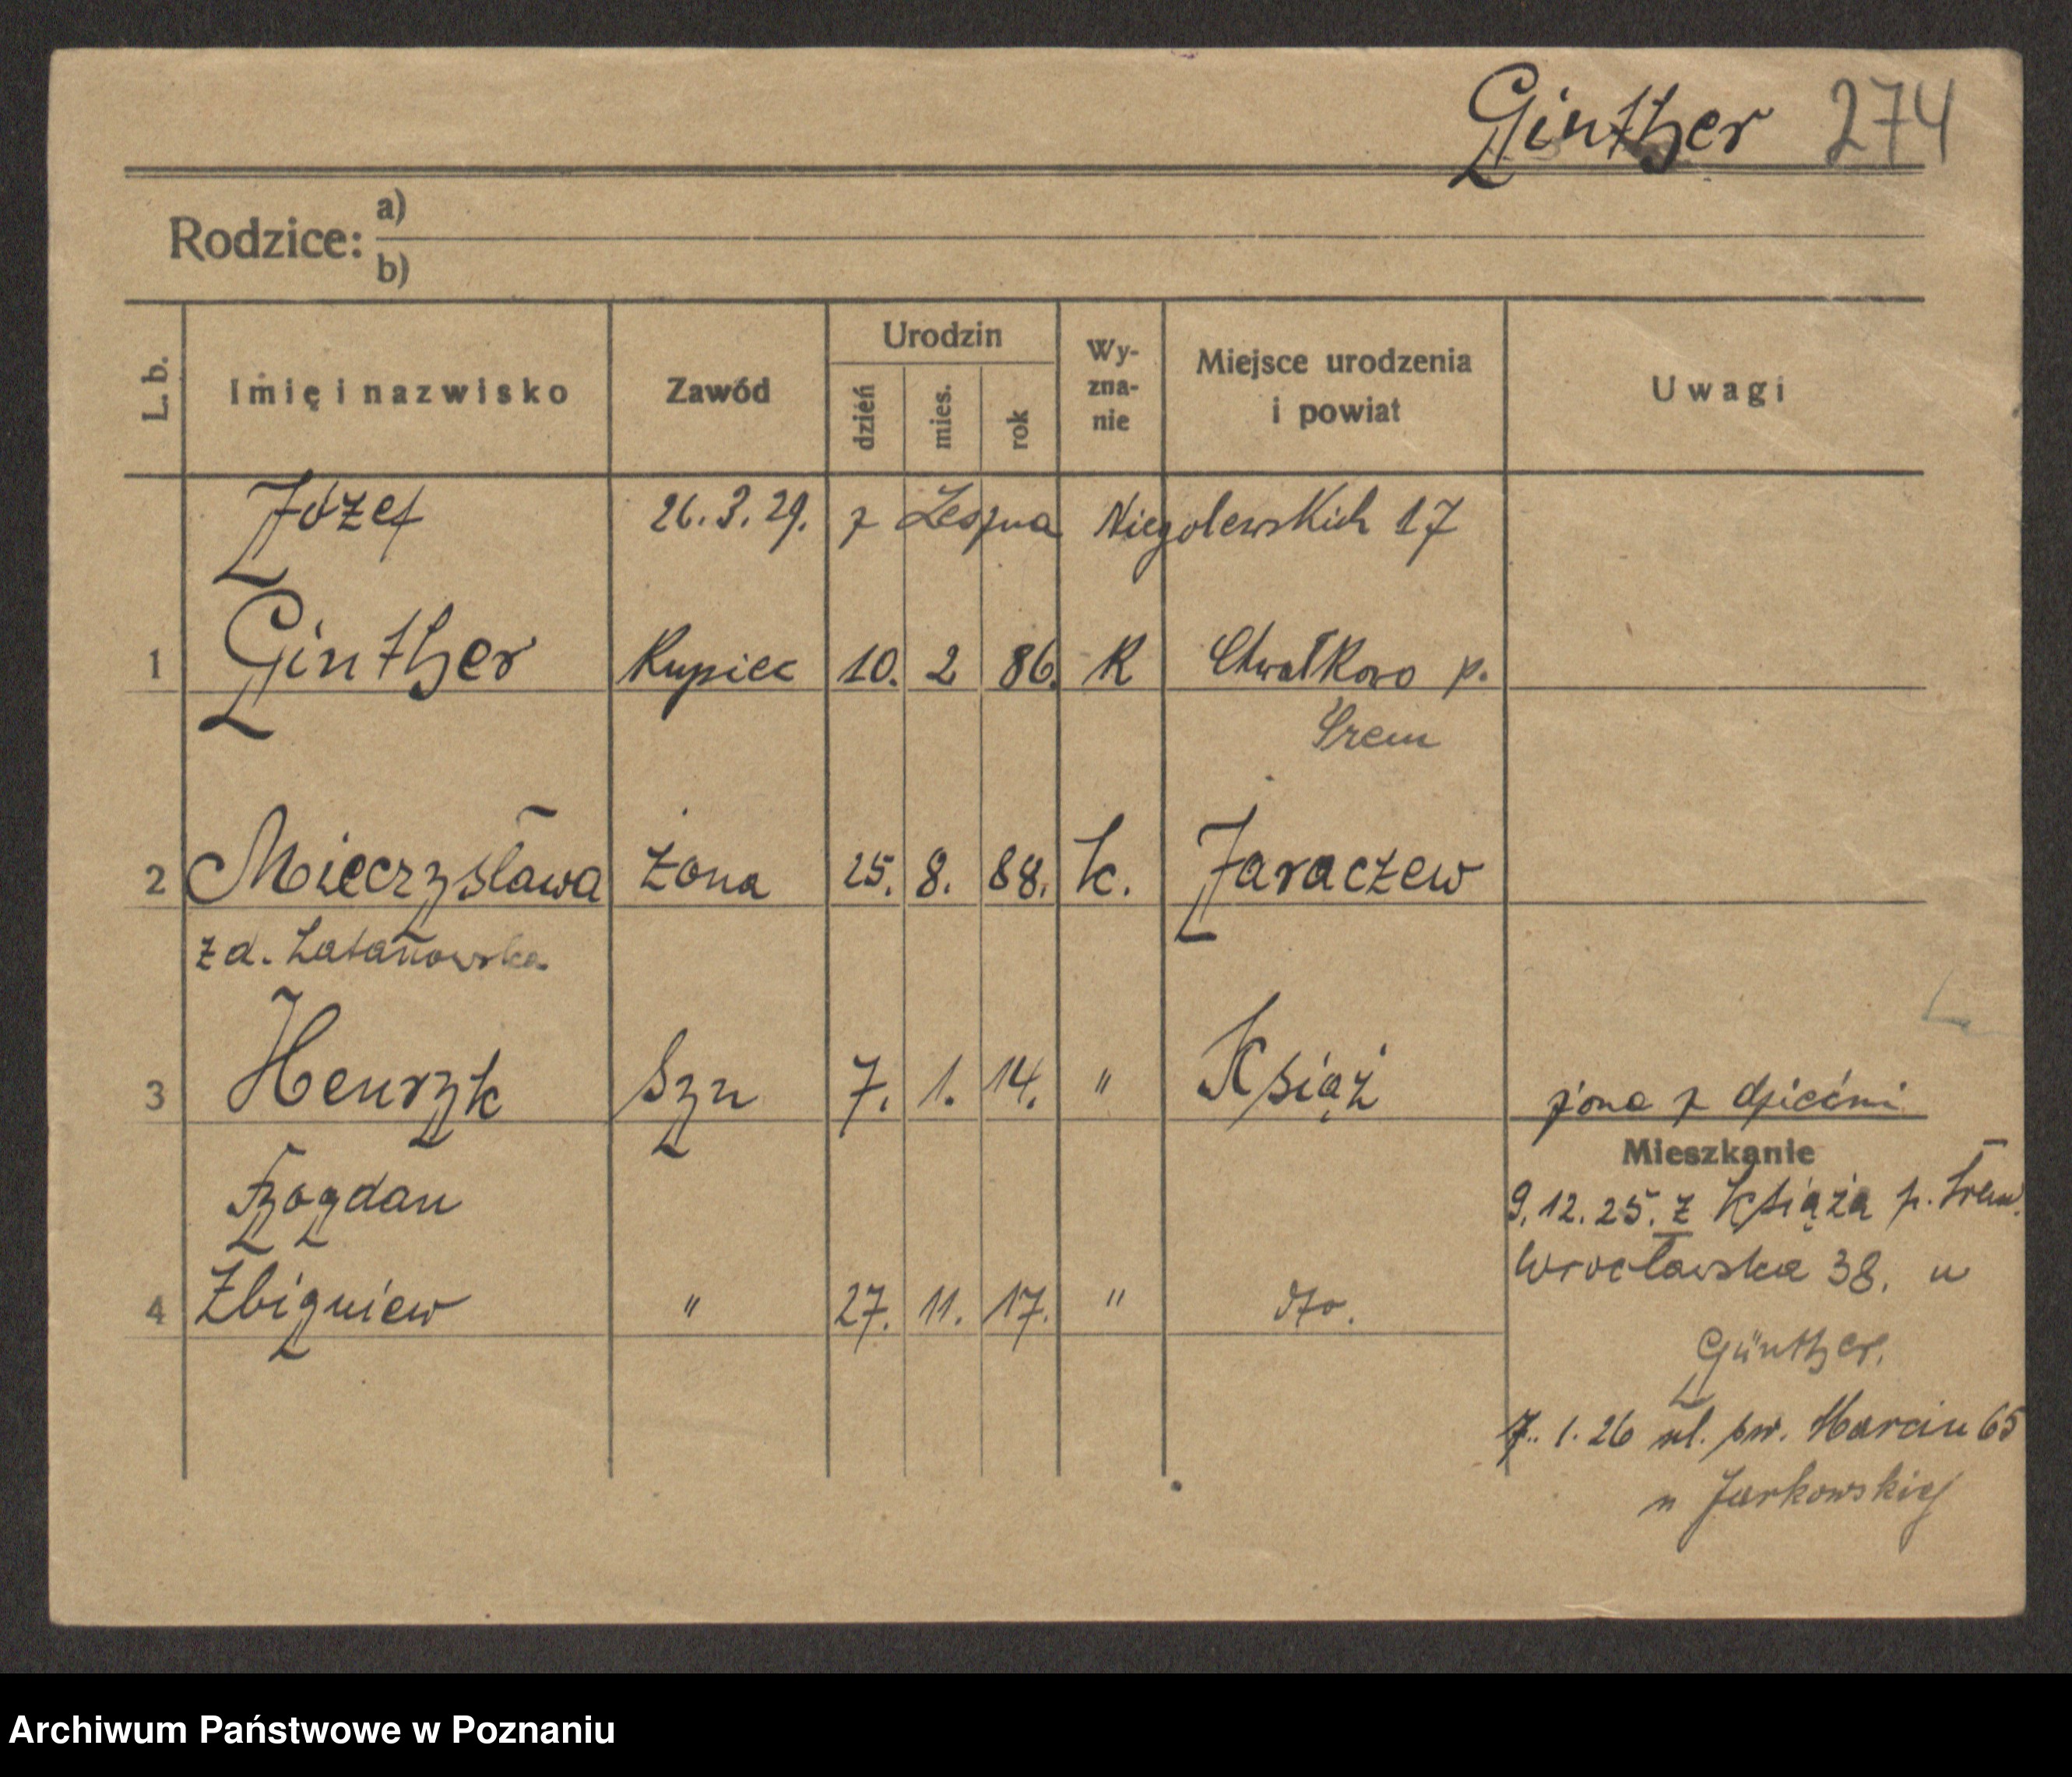 Ginther 274
Rodzice: a)
b)
L. b.
Imię i nazwisko
Zawód
Urodzin
dzień
mies.
rok
Wy-
zna-
nie
Miejsce urodzenia
i powiat
Uwagi
Józef 26.3.29. z Leszna Niegolewskich 17
1 Ginther Kupiec 10. 2 86. K Chwałkowo p.
Śrem
2 Mieczysława żona 25. 8. 88. k. Jaraczew
z d. Łatanowska
3 Henryk Syn 7. 1. 14. " Książ żona z dziećmi
Bogdan
4 Zbigniew " 27. 11. 17. " dto.
Mieszkanie
9.12.25. z Książa p. Śrem.
Wrocławska 38. u
Günther.
7. 1. 26 ul. św. Marcin 65
u Jarkowskiej
Archiwum Państwowe w Poznaniu